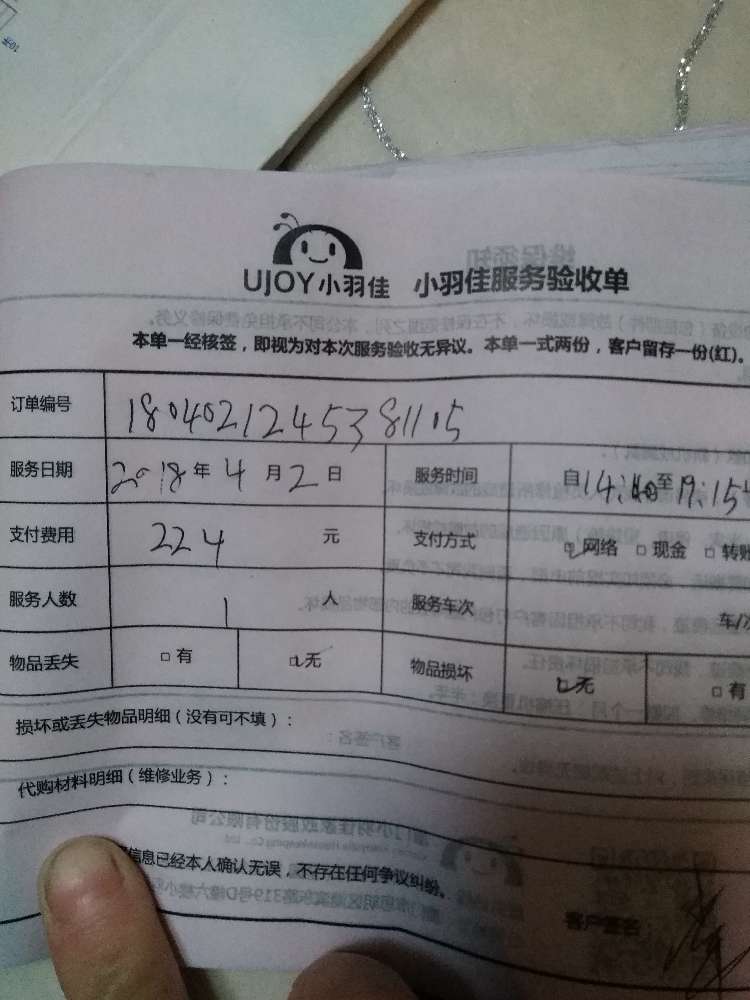 UJOY小羽佳 小羽佳服务验收单
本单一经核签，即视为对本次服务验收无异议。本单一式两份，客户留存一份(红)。
订单编号 1804021245381105
服务日期 2018年4月2日 服务时间 自14:40至19:15
支付费用 224 元 支付方式 网络 现金 转账
服务人数 1 人 服务车次 车/次
物品丢失 有 无 物品损坏 无 有
损坏或丢失物品明细（没有可不填）：
代购材料明细（维修业务）：
信息已经本人确认无误，不存在任何争议纠纷。
客户签名